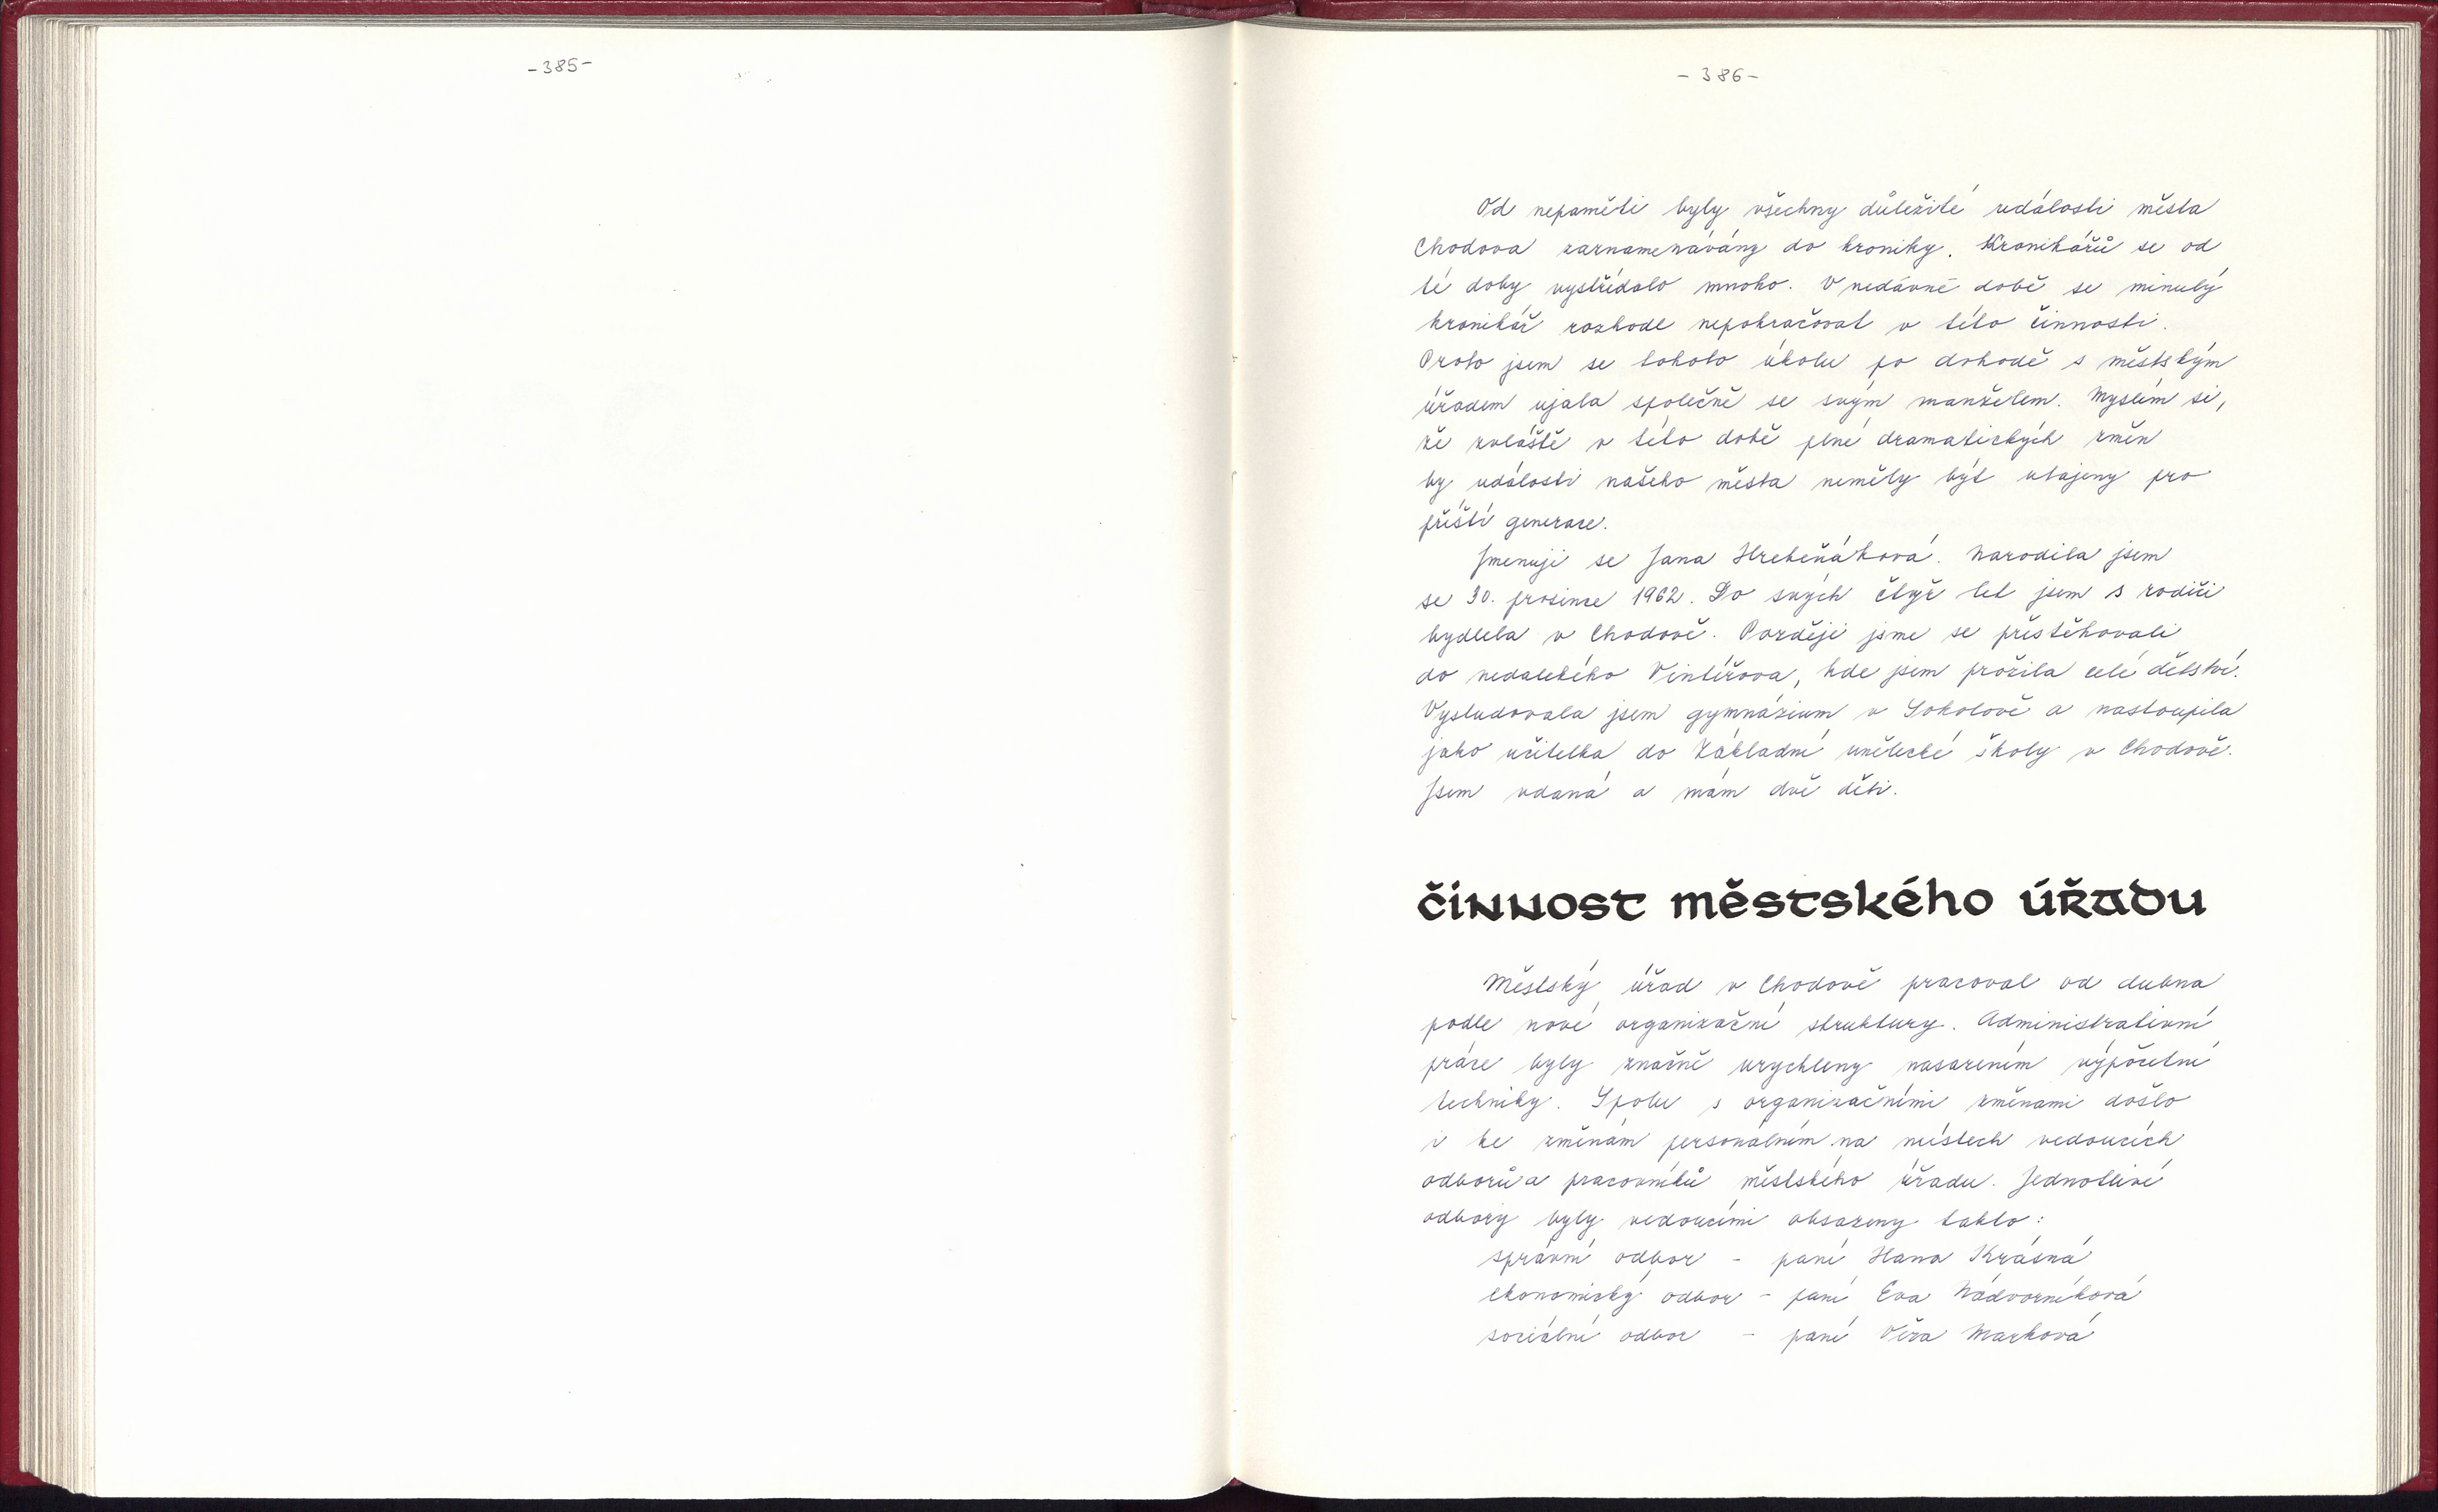 -385-
-386-
Od nepaměti byly všechny důležité události města
Chodova zaznamenávány do kroniky. Kronikářů se od
té doby vystřídalo mnoho. V nedávné době se minulý
kronikář rozhodl nepokračovat v této činnosti.
Proto jsem se tohoto úkolu po dohodě s městským
úřadem ujala společně se svým manželem. Myslím si,
že zvláště v této době plné dramatických změn
by události našeho města neměly být utajeny pro
příští generace.
Jmenuji se Jana Hrebeňáková. Narodila jsem
se 30. prosince 1962. Do svých čtyř let jsem s rodiči
bydlela v Chodově. Později jsme se přestěhovali
do nedalekého Vintířova, kde jsem prožila celé dětství.
Vystudovala jsem gymnázium v Sokolově a nastoupila
jako učitelka do Základní umělecké školy v Chodově.
Jsem vdaná a mám dvě děti.
činnost městského úřadu
Městský úřad v Chodově pracoval od dubna
podle nové organizační struktury. Administrativní
práce byly značně urychleny nasazením výpočetní
techniky. Spolu s organizačními změnami došlo
i ke změnám personálním na místech vedoucích
odborů a pracovníků městského úřadu. Jednotlivé
odbory byly vedoucími obsazeny takto:
správní odbor - paní Hana Krásná
ekonomický odbor - paní Eva Nádvorníková
sociální odbor - paní Věra Marková